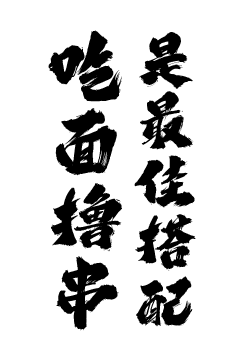 吃面撸串
是最佳搭配